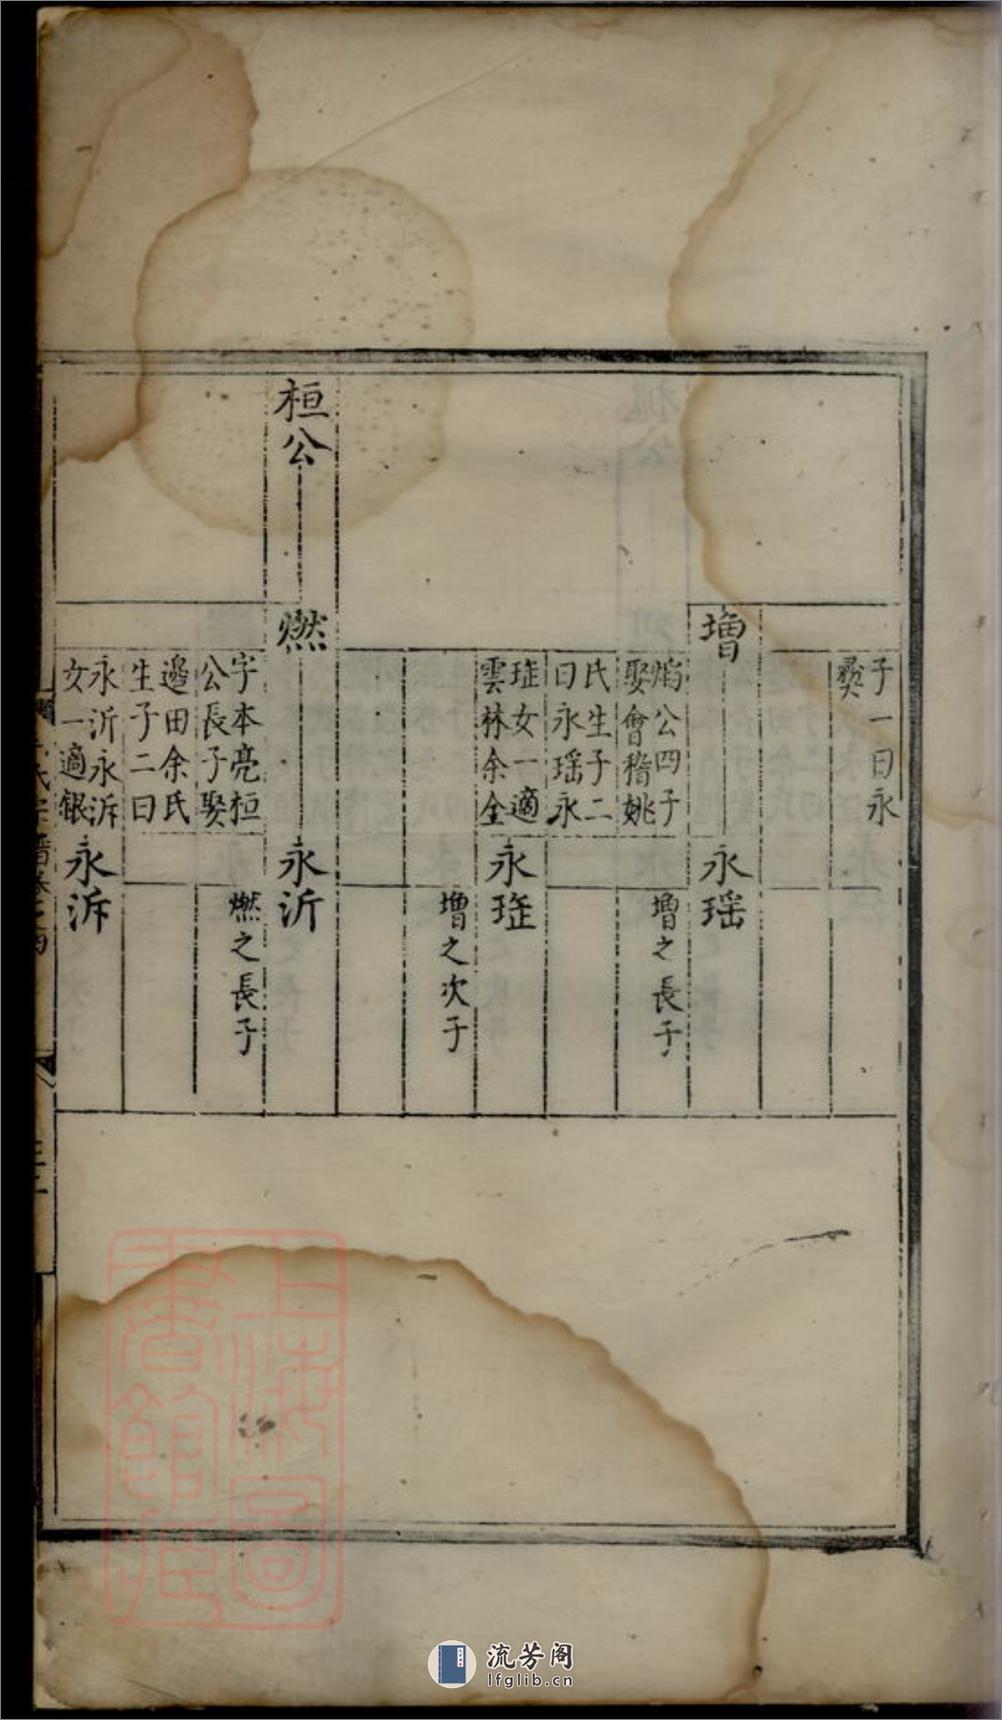 子一曰永
彝
增
焰公四子
娶會稽姚
氏生子二
曰永瑶永
琟女一適
雲林余全
永瑶
增之長子
永琟
增之次子
桓公
燃
字本亮桓
公長子娶
邊田余氏
生子二曰
永沂永泝
女一適銀
永沂
燃之長子
永泝
氏宗譜卷之
上海圖
書館藏
流芳阁
lfglib.cn